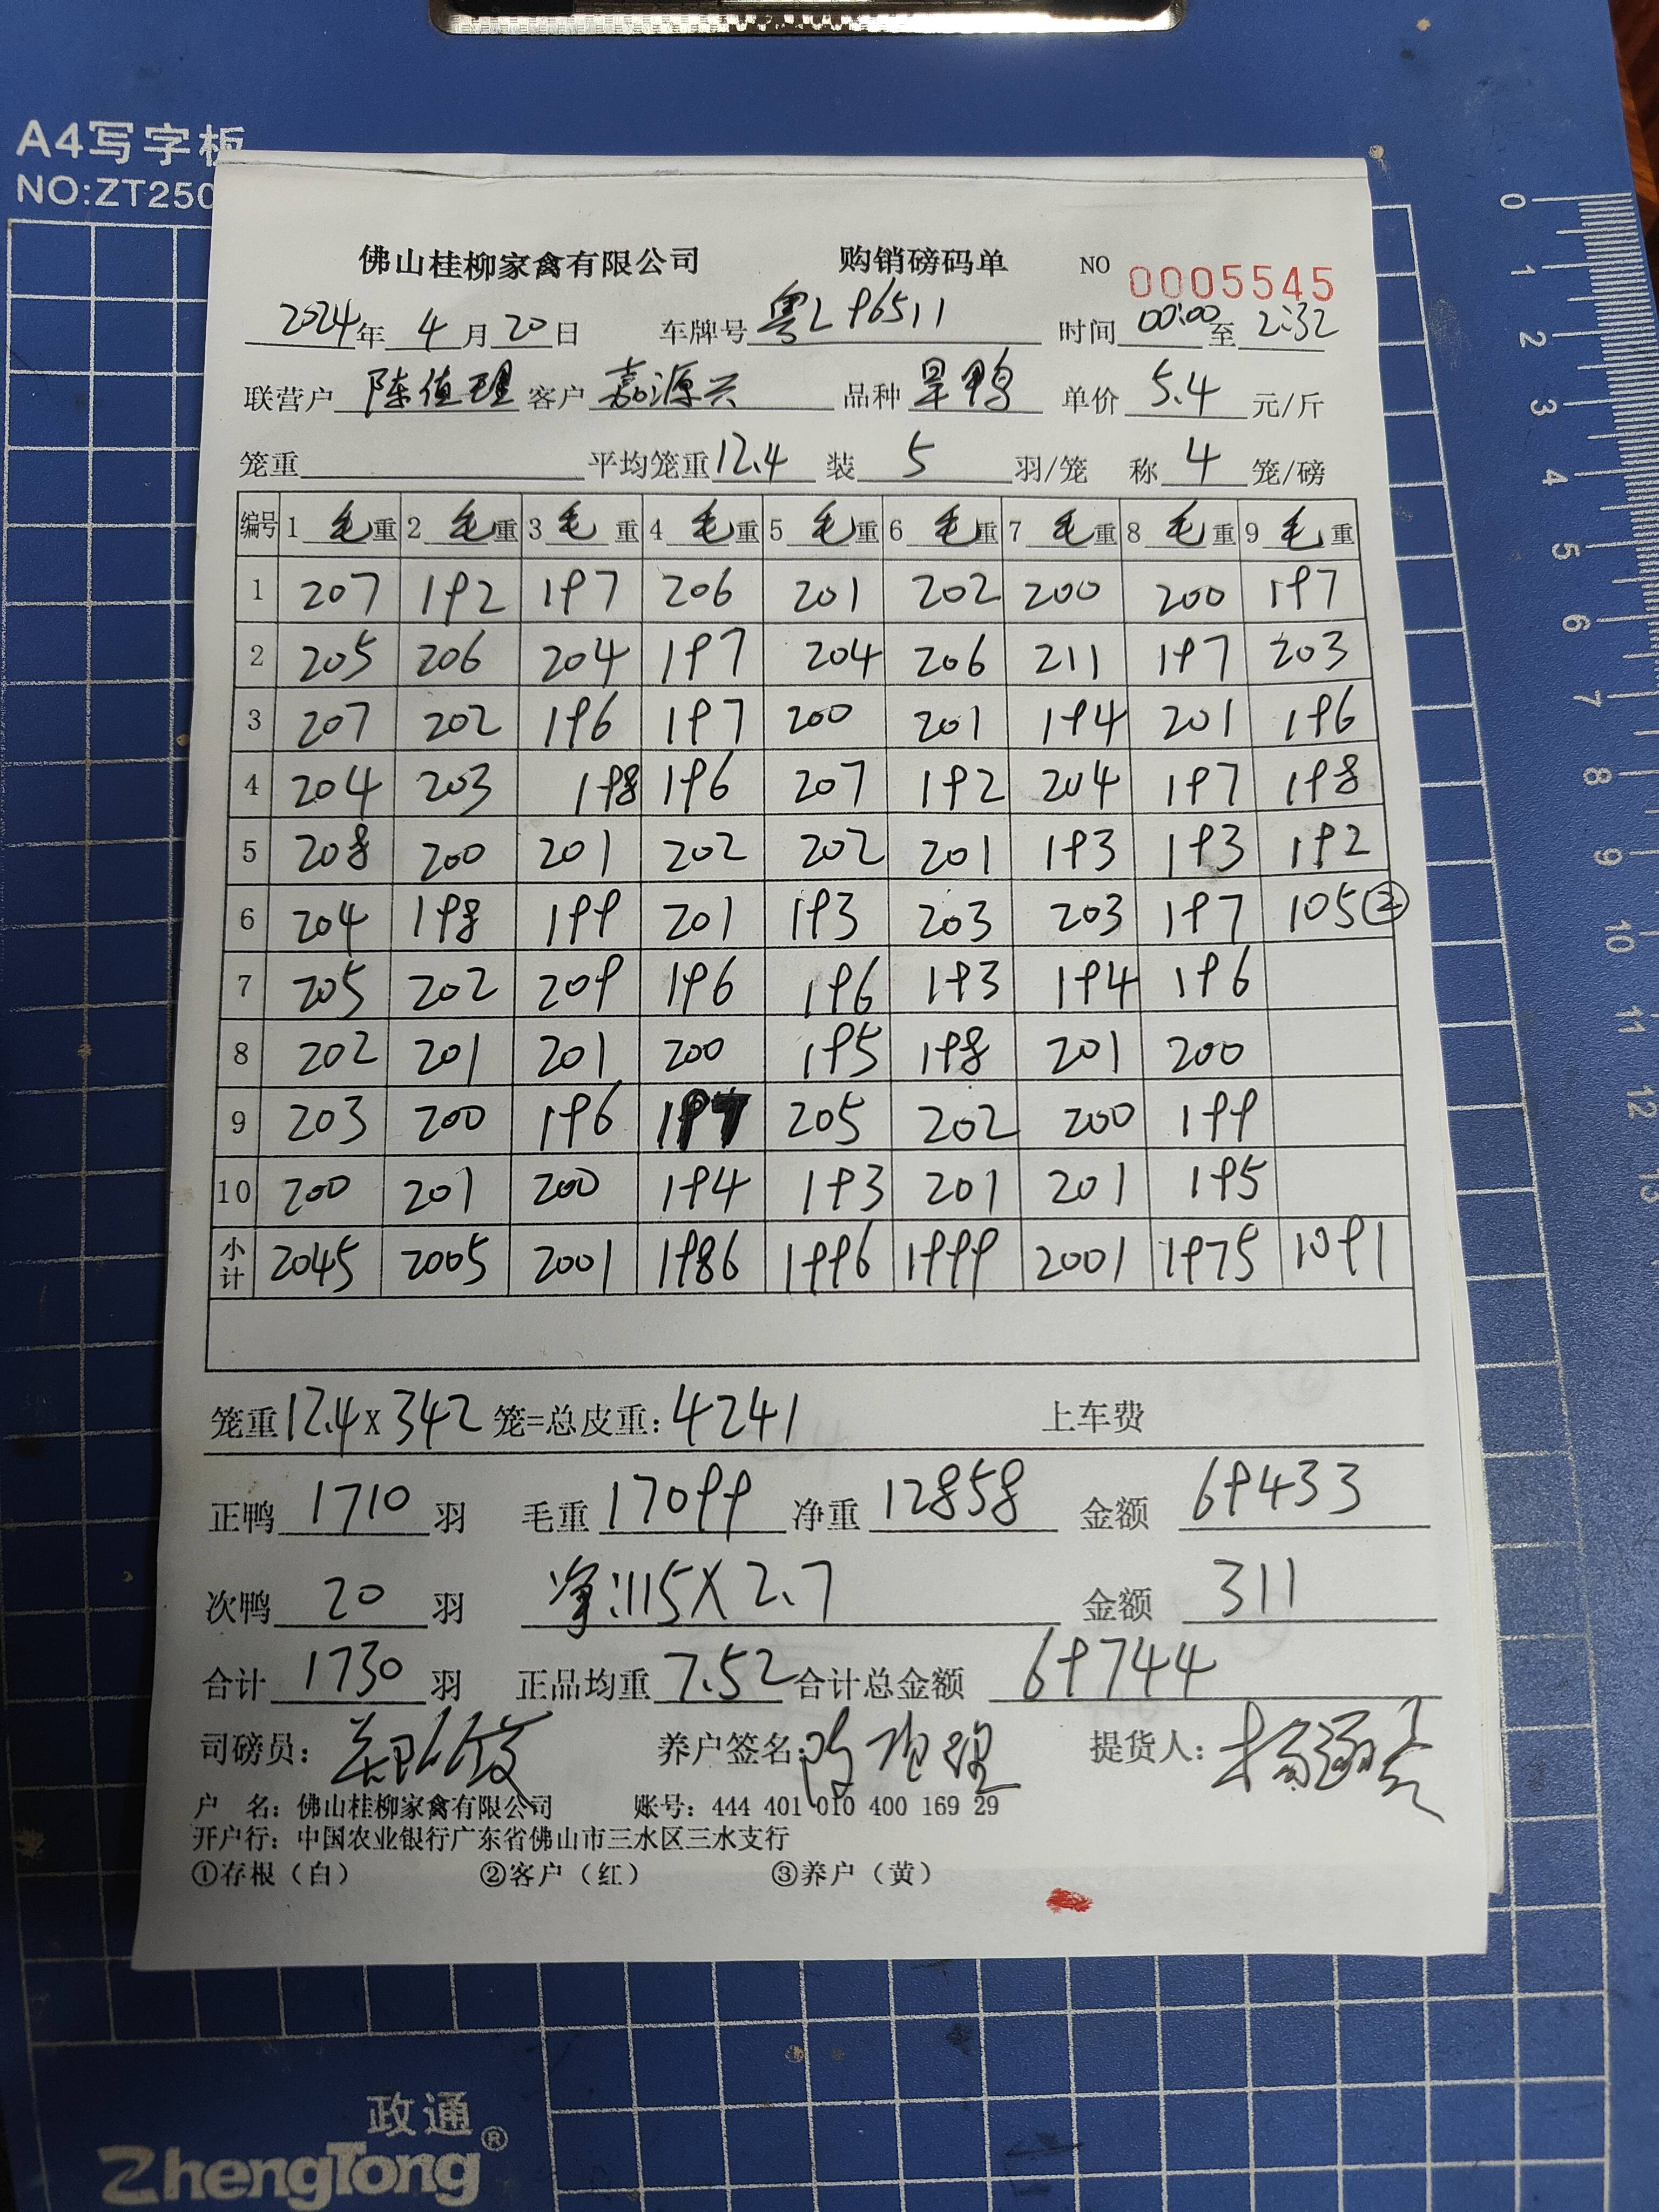 A4写字板
NO:ZT250
佛山桂柳家禽有限公司 购销磅码单 NO 0005545
2024年 4月20日 车牌号 粤L96511 时间 00:00至 2:32
联营户 陈值理 客户 嘉源兴 品种 旱鸭 单价 5.4 元/斤
笼重 平均笼重12.4 装 5 羽/笼 称 4 笼/磅
编号 1 毛重 2 毛重 3 毛重 4 毛重 5 毛重 6 毛重 7 毛重 8 毛重 9 毛重
1 207 192 197 206 201 202 200 200 197
2 205 206 204 197 204 206 211 197 203
3 207 202 196 197 200 201 194 201 196
4 204 203 198 196 207 192 204 197 198
5 208 200 201 202 202 201 193 193 192
6 204 198 199 201 193 203 203 197 105②
7 205 202 209 196 196 193 194 196
8 202 201 201 200 195 198 201 200
9 203 200 196 197 205 202 200 199
10 200 201 200 194 193 201 201 195
小计 2045 2005 2001 1986 1996 1999 2001 1975 1091
笼重12.4X342 笼=总皮重:4241 上车费
正鸭 1710 羽 毛重 17099 净重 12858 金额 69433
次鸭 20 羽 净:115X2.7 金额 311
合计 1730 羽 正品均重 7.52 合计总金额 69744
司磅员: 养户签名:陈值理 提货人:
户 名: 佛山桂柳家禽有限公司 账号: 444 401 010 400 169 29
开户行: 中国农业银行广东省佛山市三水区三水支行
①存根（白） ②客户（红） ③养户（黄）
0
1
2
3
4
5
6
7
8
9
10
11
12
13
政通
ZhengTong®